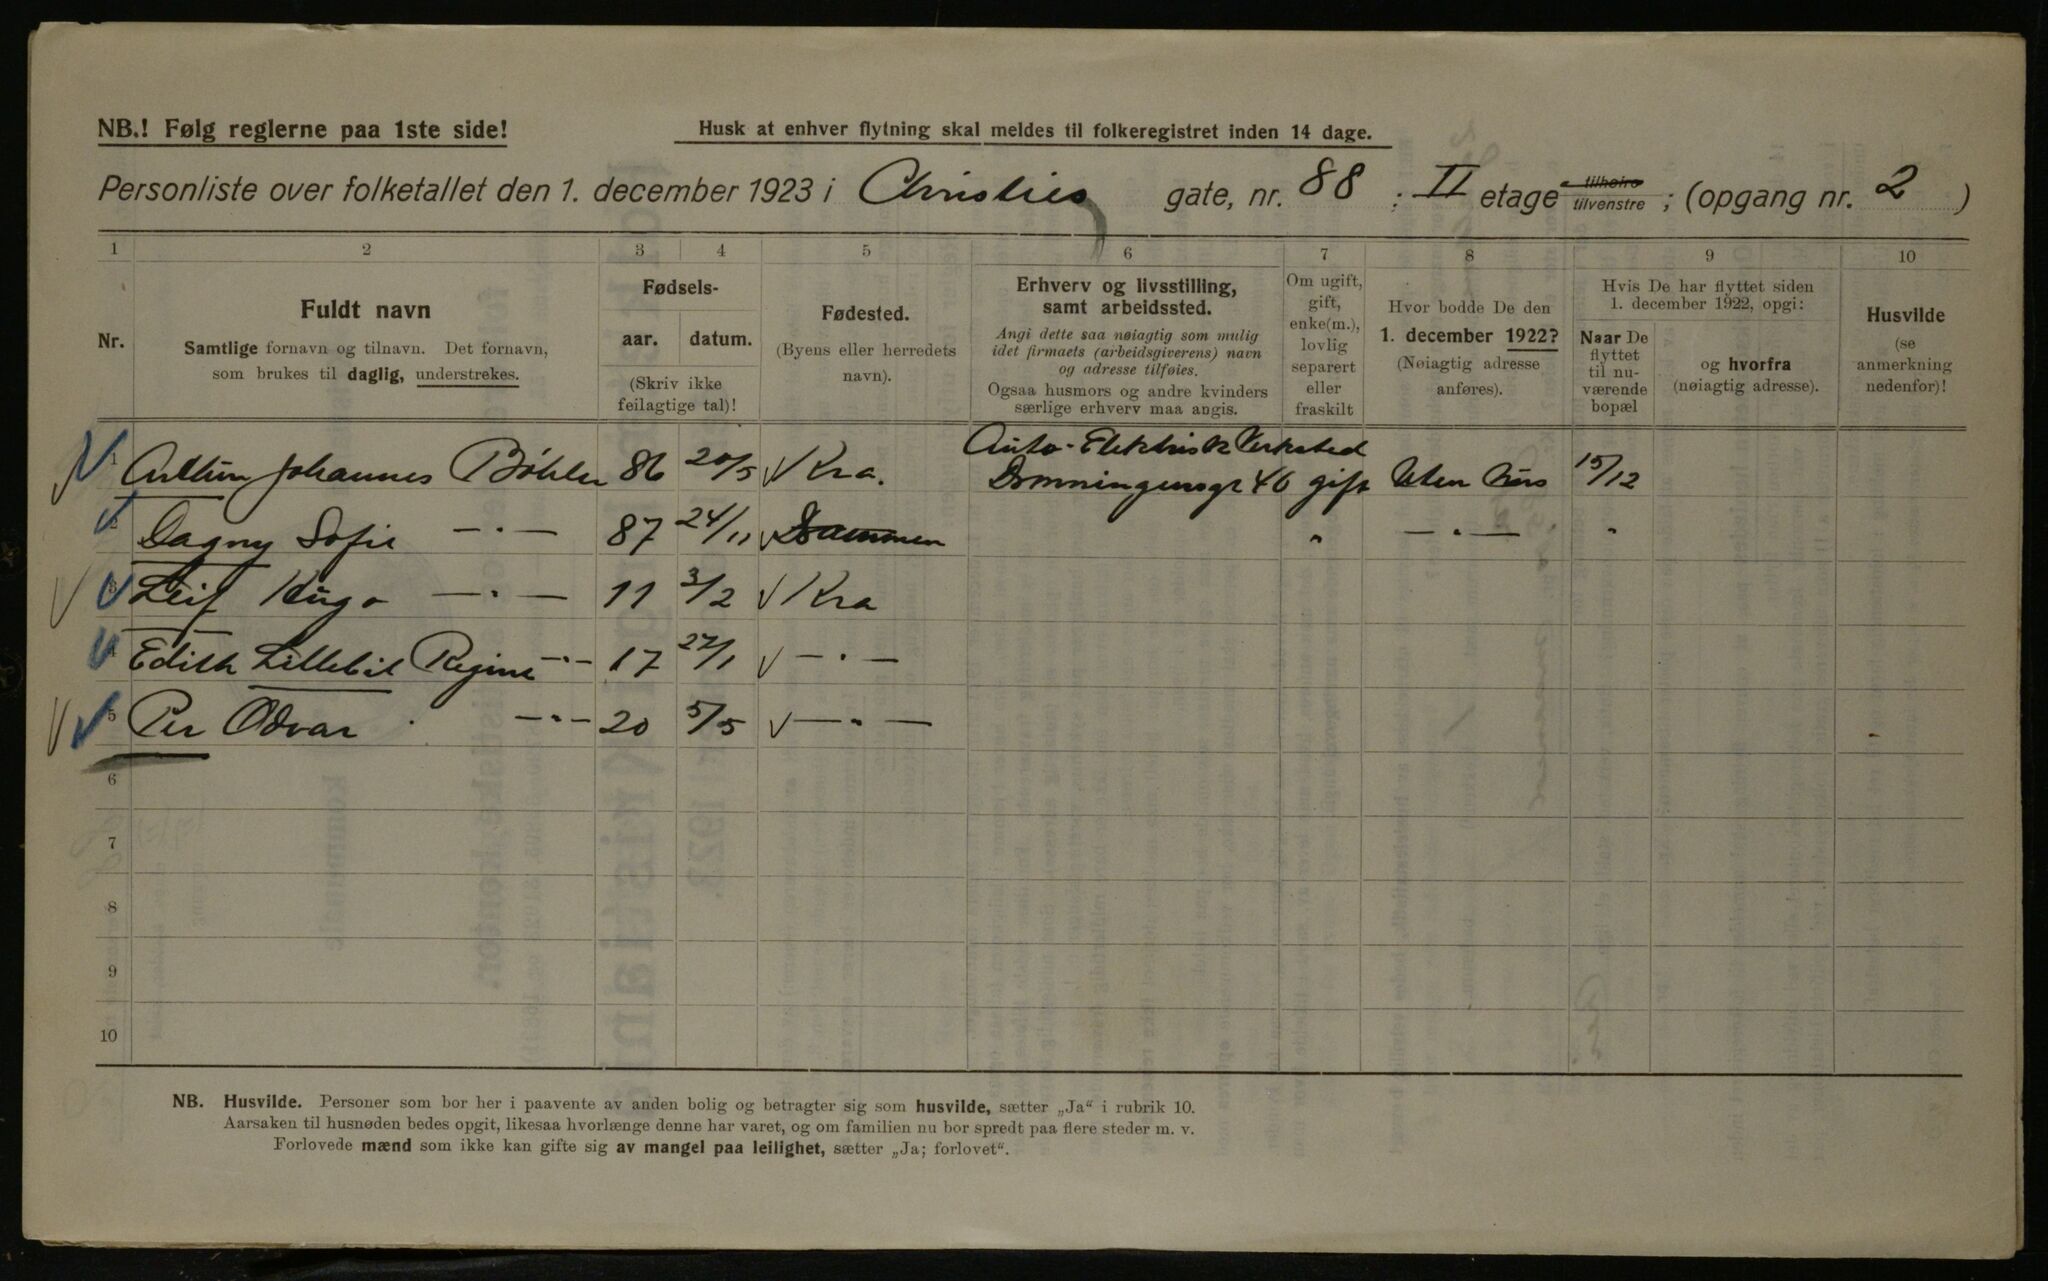 NB.! Følg reglerne paa 1ste side!
Husk at enhver flytning skal meldes til folkeregistret inden 14 dage.
Personliste over folketallet den 1. december 1923 i Christies gate, nr. 88 ; II etage tilhøire tilvenstre ; (opgang nr. 2 )
1 2 3 4 5 6 7 8 9 10
Nr.
Fuldt navn
Samtlige fornavn og tilnavn. Det fornavn,
som brukes til daglig, understrekes.
Fødsels-
aar. datum.
(Skriv ikke
feilagtige tal)!
Fødested.
(Byens eller herredets
navn).
Erhverv og livsstilling,
samt arbeidssted.
Angi dette saa nøiagtig som mulig
idet firmaets (arbeidsgiverens) navn
og adresse tilføies.
Ogsaa husmors og andre kvinders
særlige erhverv maa angis.
Om ugift,
gift,
enke(m.),
lovlig
separert
eller
fraskilt
Hvor bodde De den
1. december 1922?
(Nøiagtig adresse
anføres).
Hvis De har flyttet siden
1. december 1922, opgi:
Naar De
flyttet
til nu-
værende
bopæl
og hvorfra
(nøiagtig adresse).
Husvilde
(se
anmerkning
nedenfor)!
Auto-Elektrisk Verksted
1 Arthur Johannes Böhler 86 20/5 Kra. Dronningensgt 40 gift Uten hus 15/12
2 Dagny Sofie —„— 87 24/11 Drammen „ —„— „
3 Leif Hugo —„— 11 3/2 Kra
4 Edith Lillebil Regine —„— 17 27/1 —„—
5 Per Odvar —„— 20 5/5 —„—
6
7
8
9
10
NB. Husvilde. Personer som bor her i paavente av anden bolig og betragter sig som husvilde, sætter „Ja“ i rubrik 10.
Aarsaken til husnøden bedes opgit, likesaa hvorlænge denne har varet, og om familien nu bor spredt paa flere steder m. v.
Forlovede mænd som ikke kan gifte sig av mangel paa leilighet, sætter „Ja; forlovet“.